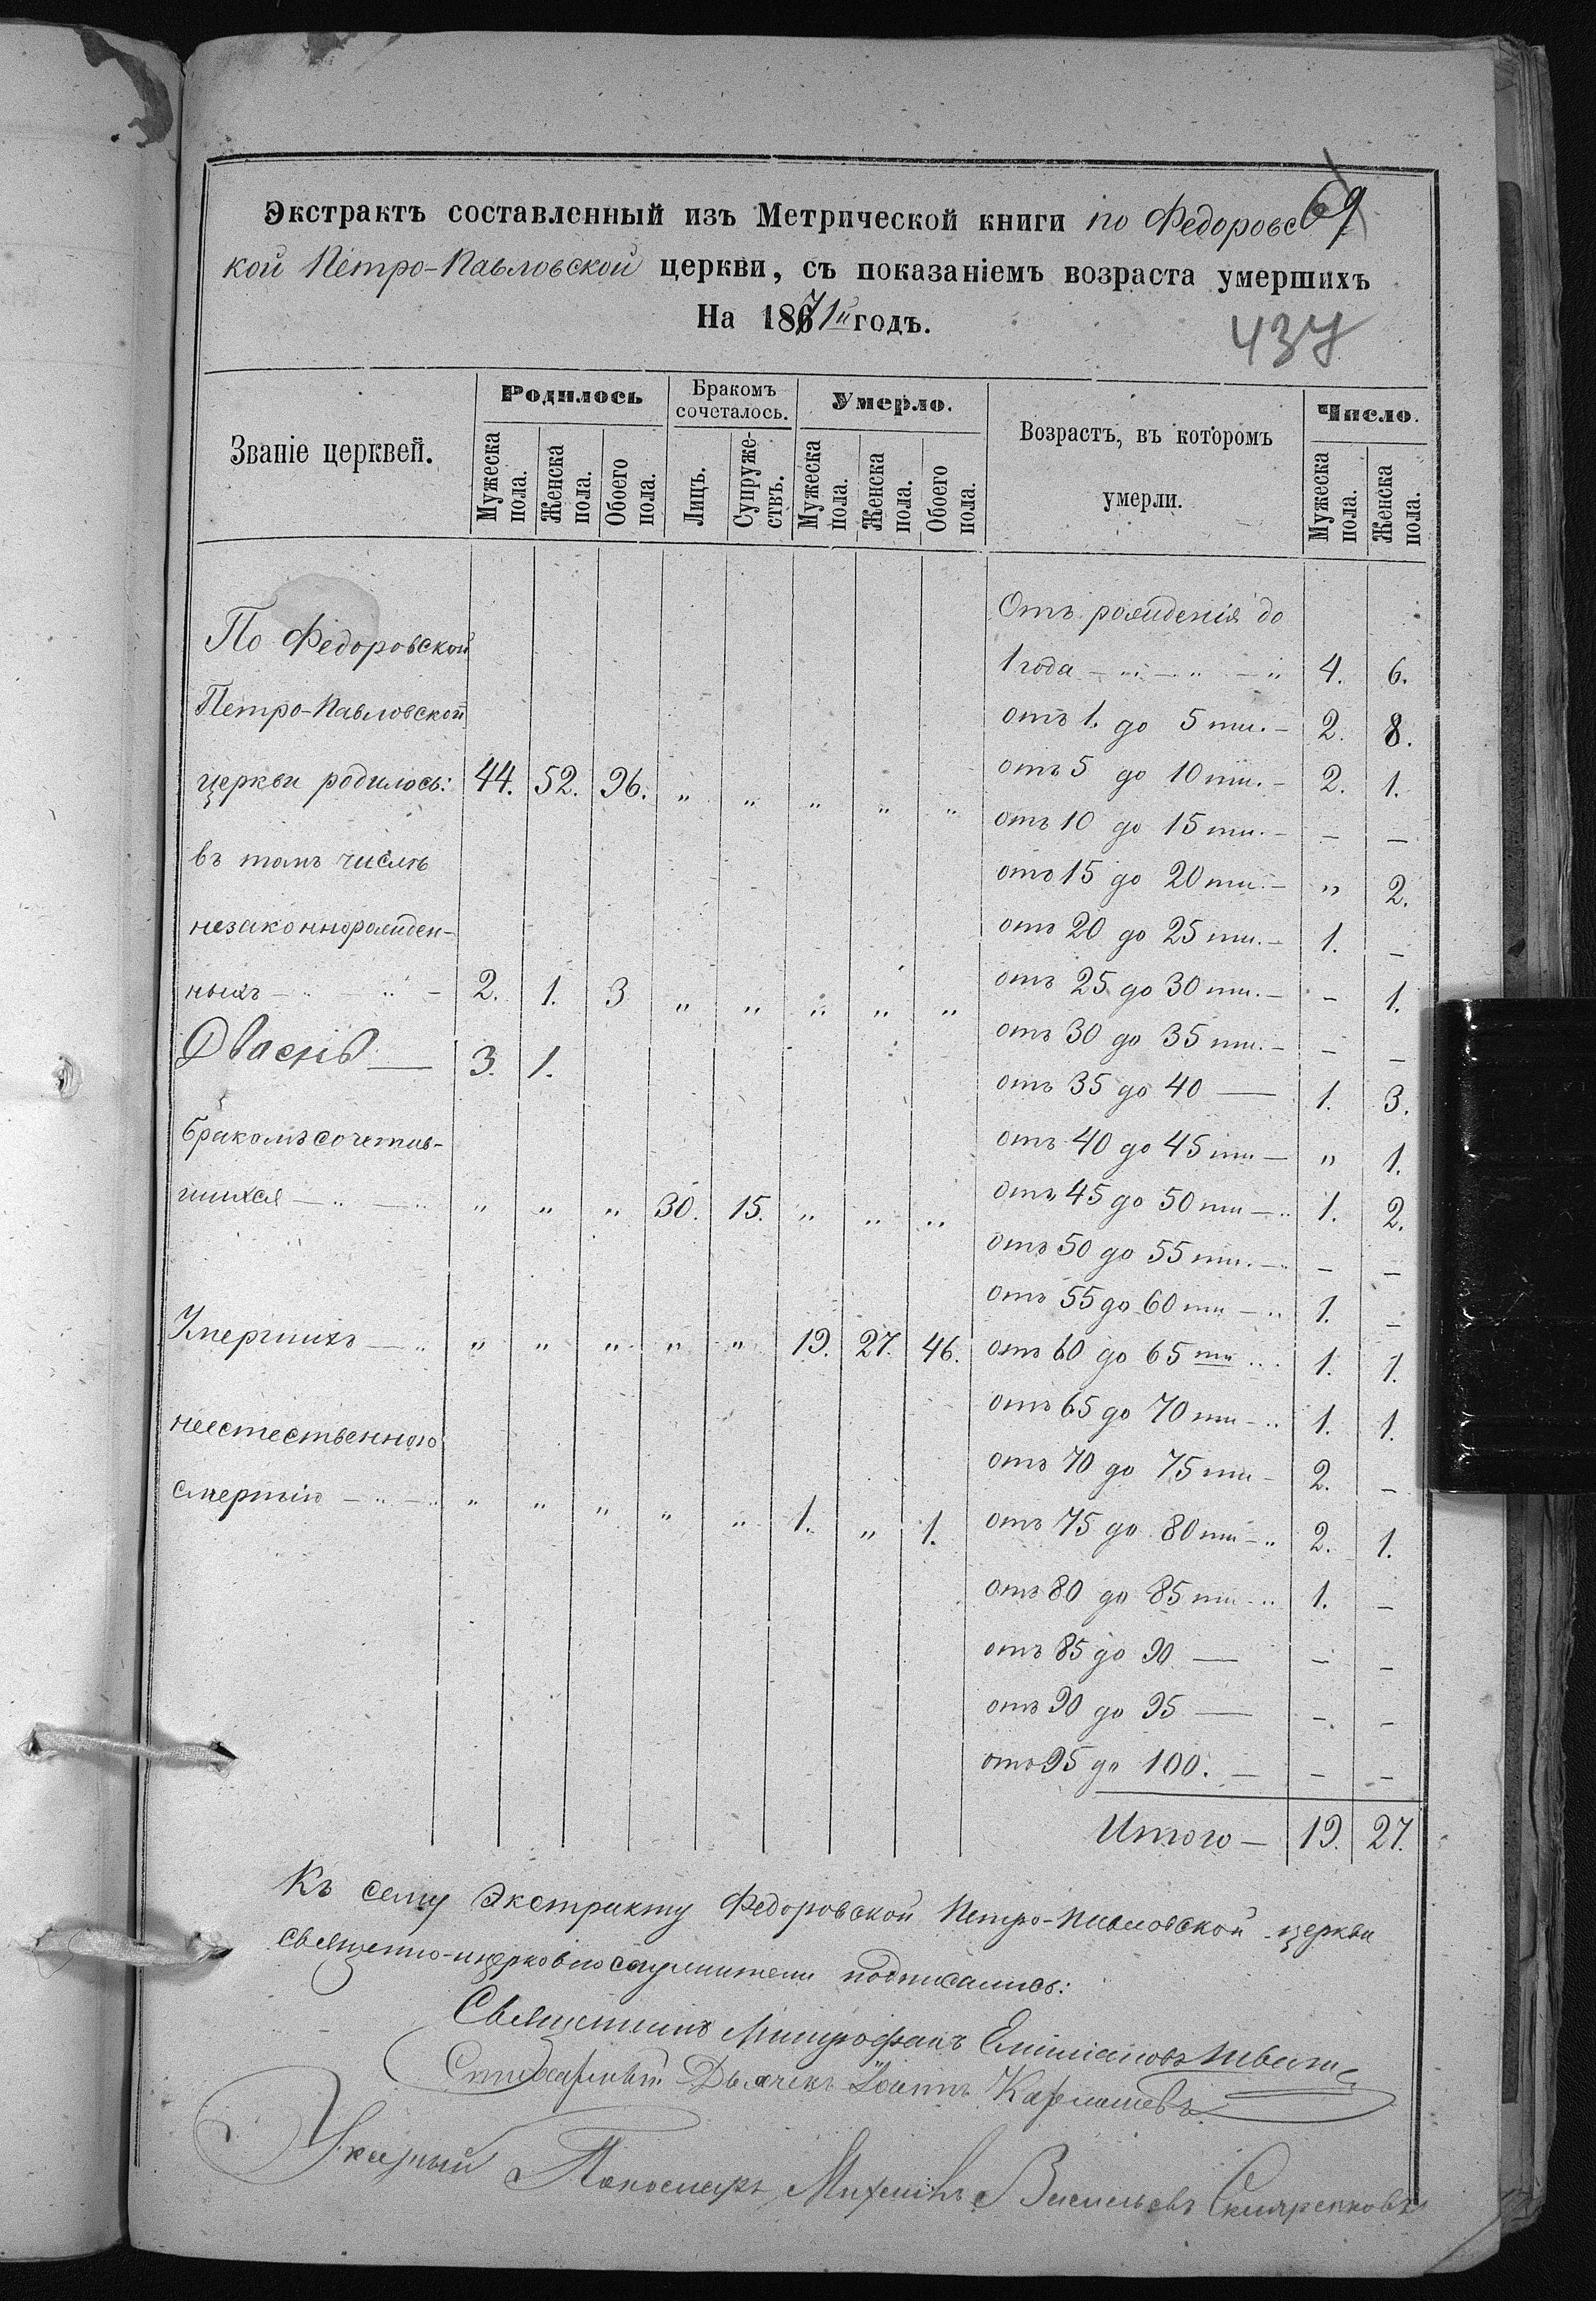 69
Экстрактъ составленный изъ Метрической книги по Федоровс
кой Петро-Павловской церкви, съ показаніемъ возраста умершихъ
На 1871й годъ.
437
Званіе церквей. Родилось Бракомъ сочеталось. Умерло. Возрастъ, въ которомъ умерли. Число.
Мужеска пола. Женска пола. Обоего пола. Лицъ. Супружествъ. Мужеска пола. Женска пола. Обоего пола. Мужеска пола. Женска пола.
Отъ рожденія до
По Федоровской
1 года — „ — „ — „ 4. 6.
Петро-Павловской
отъ 1. до 5 ти. — 2. 8.
церкви родилось: 44. 52. 96. „ „ „ „ „
отъ 5 до 10 ти. — 2. 1.
отъ 10 до 15 ти. — — —
въ томъ числѣ
отъ 15 до 20 ти. — „ 2.
незаконнорожден-
отъ 20 до 25 ти. — 1. —
ныхъ — „ — „ — 2. 1. 3 „ „ „ „ „
отъ 25 до 30 ти. — — 1.
3. 1.
отъ 30 до 35 ти. — — —
отъ 35 до 40 — 1. 3.
бракомъ сочетав-
отъ 40 до 45 ти — „ 1.
шихся — „ — „ „ „ „ 30. 15. „ „ „
отъ 45 до 50 ти — „ 1. 2.
отъ 50 до 55 ти. — — —
отъ 55 до 60 ти — „ 1. —
Умершихъ — „ „ „ „ „ „ 19. 27. 46.
отъ 60 до 65 ти „ 1. 1.
отъ 65 до 70 ти — „ 1. 1.
неестественною
отъ 70 до 75 ти — 2. —
смертію — „ — „ „ „ „ „ „ 1. „ 1.
отъ 75 до 80 ти — „ 2. 1.
отъ 80 до 85 ти — „ 1. —
отъ 85 до 90 — — —
отъ 90 до 95 — — —
отъ 95 до 100. — — —
Итого — 19. 27.
Къ сему Экстракту Федоровской Петро-Павловской церкви
священно-церковнослужители подписались:
Священникъ Митрофанъ
Дьячекъ Іоаннъ
Указный Пономарь Васильевъ